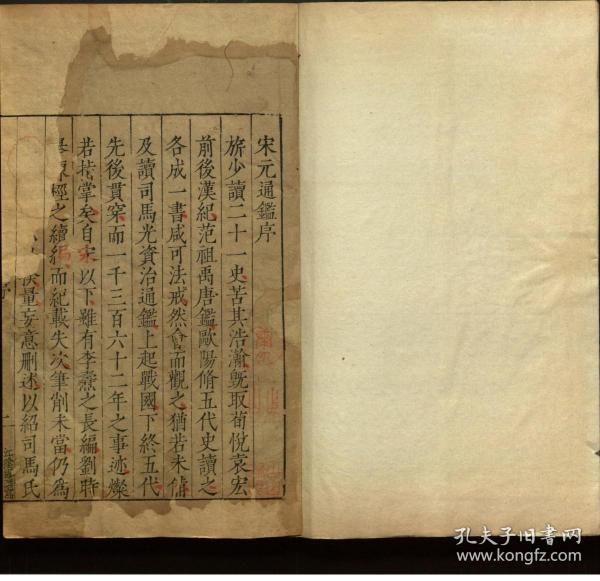 宋元通鑑序
旂少讀二十一史苦其浩瀚旣取荀悅袁宏
前後漢紀范祖禹唐鑑歐陽脩五代史讀之
各成一書咸可法戒然會而觀之猶若未備
及讀司馬光資治通鑑上起戰國下終五代
先後貫穿而一千三百六十二年之事迹燦
若指掌矣自宋以下雖有李燾之長編劉時
陳桱之續紀而紀載失次筆削未當仍爲
量妄意刪述以紹司馬氏
序
二
孔夫子旧书网
www.kongfz.com